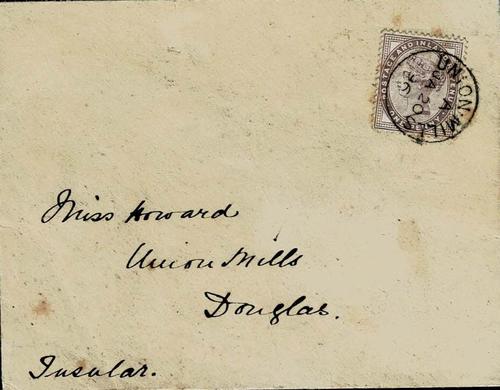 POSTAGE AND INLAND
UNION·MILLS
A
JA 20
96
Miss Howard
Union Mills
Douglas.
Insular.